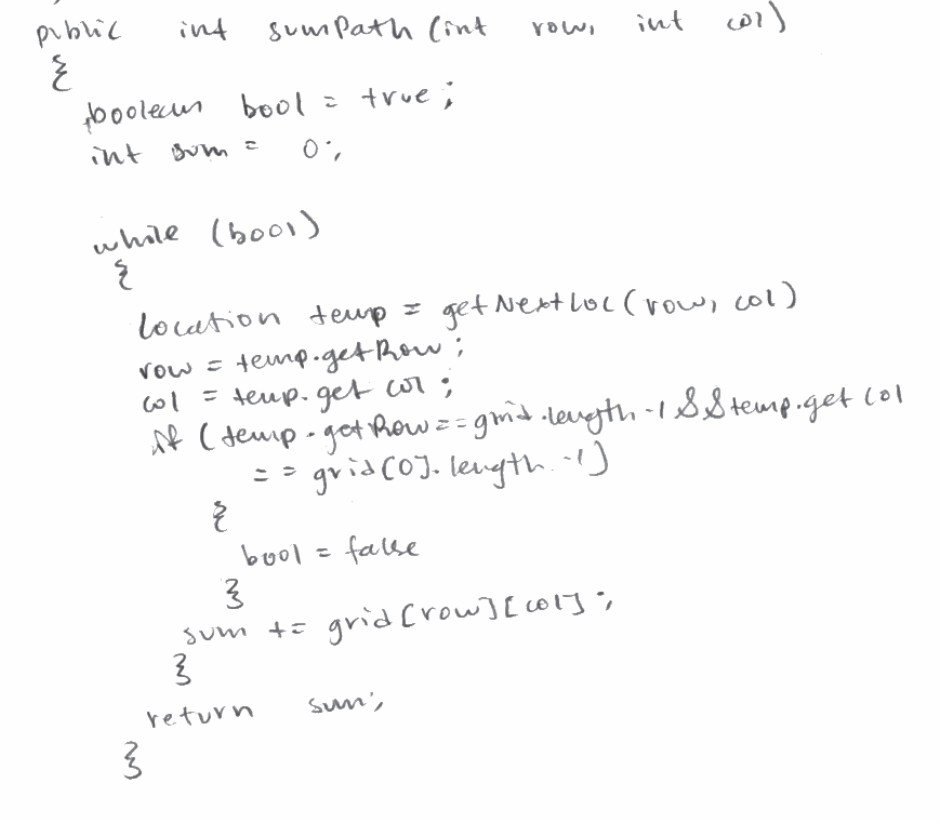 public int sumPath (int row, int col)
{
boolean bool = true;
int sum = 0;
while (bool)
{
Location temp = getNextLoc(row, col)
row = temp.getRow;
col = temp.get col;
if (temp.getRow == grid.length -1 && temp.get col
== grid[0].length -1)
{
bool = false
}
sum += grid[row][col];
}
return sum;
}